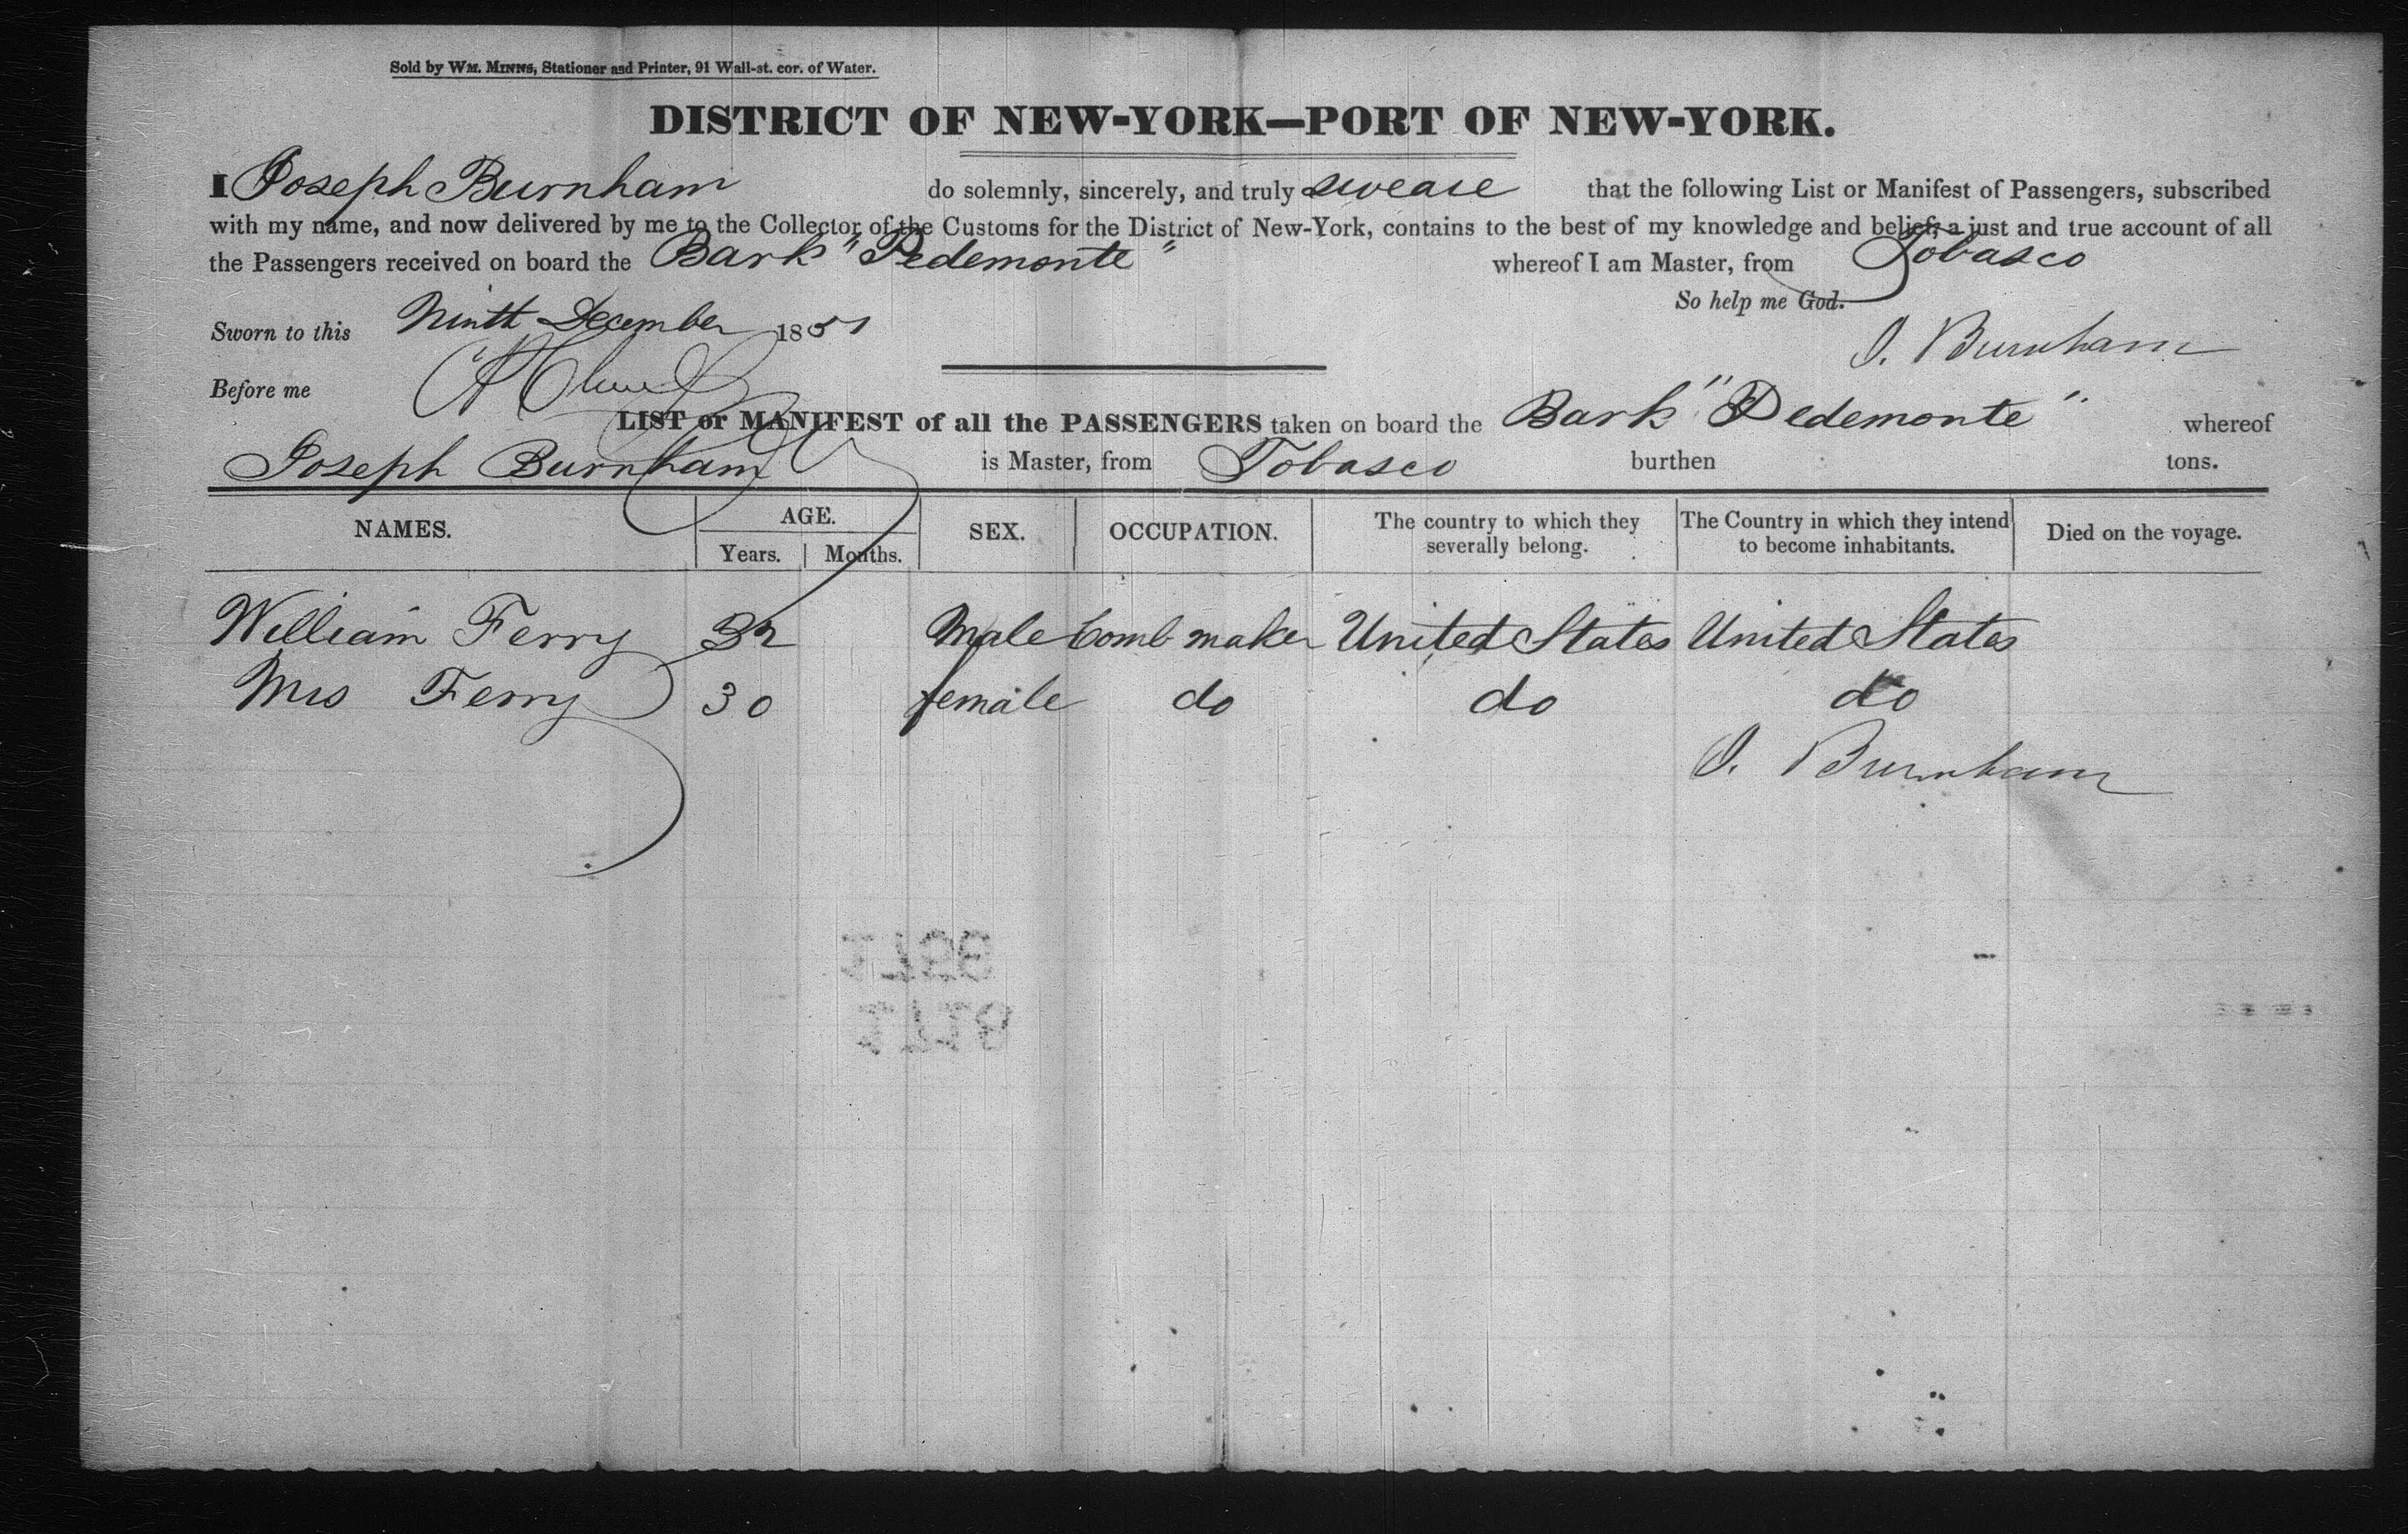 Sold by WM. MINNS, Stationer and Printer, 91 Wall-st. cor. of Water.
DISTRICT OF NEW-YORK—PORT OF NEW-YORK.
I Joseph Burnham do solemnly, sincerely, and truly sweare that the following List or Manifest of Passengers, subscribed
with my name, and now delivered by me to the Collector of the Customs for the District of New-York, contains to the best of my knowledge and belief, a just and true account of all
the Passengers received on board the Bark "Pedemonte" whereof I am Master, from Tobasco
So help me God.
Sworn to this Ninth December 1851
J. Burnham
Before me
LIST or MANIFEST of all the PASSENGERS taken on board the Bark "Pedemonte" whereof
Joseph Burnham is Master, from Tobasco burthen tons.
NAMES. AGE. Years. Months. SEX. OCCUPATION. The country to which they severally belong. The Country in which they intend to become inhabitants. Died on the voyage.
William Ferry 32 Male Comb maker United States United States
Mrs Ferry 30 female do do do
J. Burnham